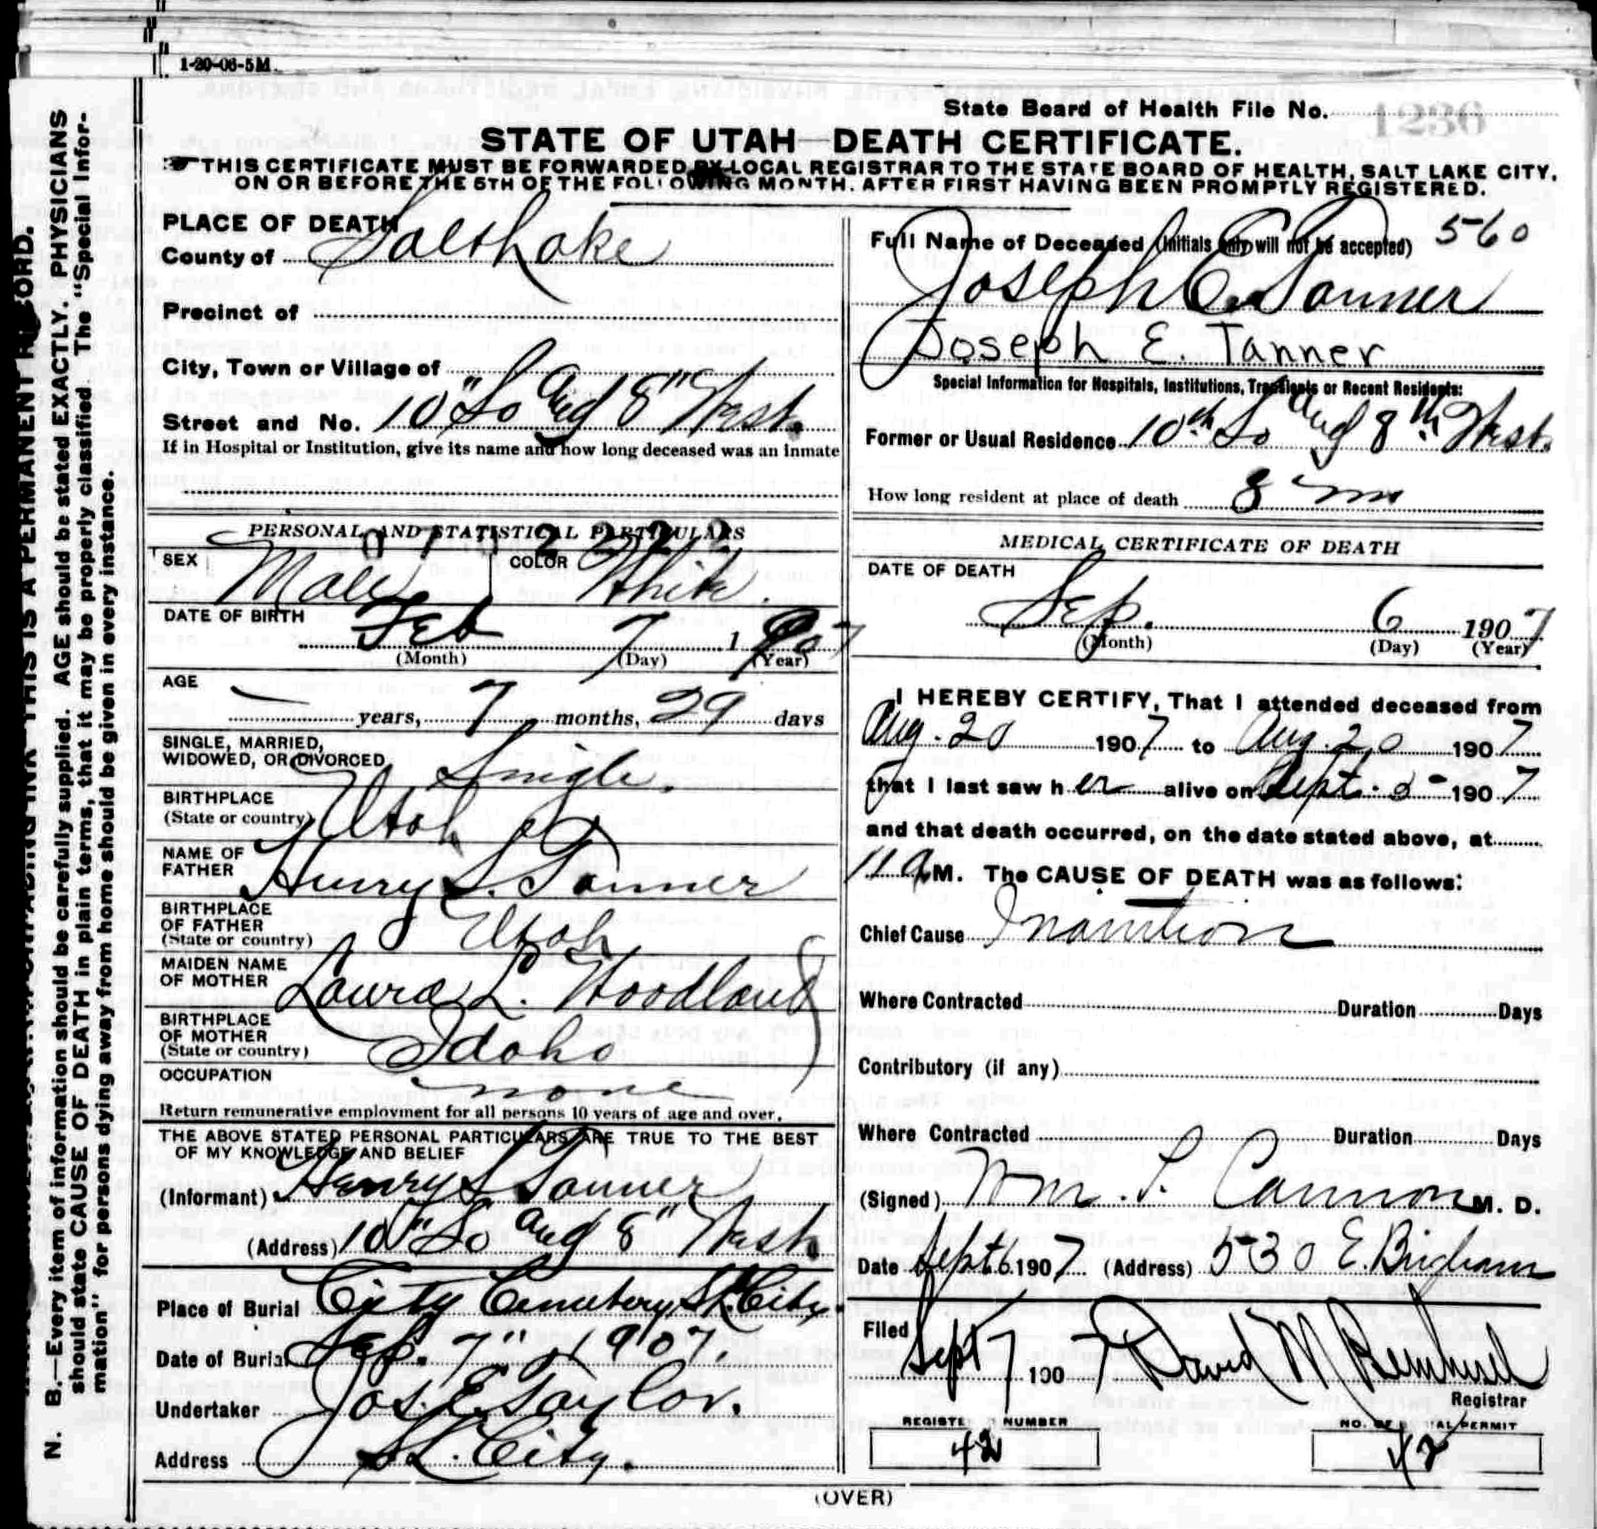 1-20-06-5M
State Board of Health File No. 1236
STATE OF UTAH—DEATH CERTIFICATE.
THIS CERTIFICATE MUST BE FORWARDED BY LOCAL REGISTRAR TO THE STATE BOARD OF HEALTH, SALT LAKE CITY,
ON OR BEFORE THE 5TH OF THE FOLLOWING MONTH, AFTER FIRST HAVING BEEN PROMPTLY REGISTERED.
N. B.—Every item of information should be carefully supplied. AGE should be stated EXACTLY. PHYSICIANS
should state CAUSE OF DEATH in plain terms, that it may be properly classified. The "Special Infor-
mation" for persons dying away from home should be given in every instance.
THIS IS A PERMANENT RECORD.
PLACE OF DEATH
County of Salt Lake
Precinct of
City, Town or Village of
Street and No. 10" So and 8" West.
If in Hospital or Institution, give its name and how long deceased was an Inmate
PERSONAL AND STATISTICAL PARTICULARS
SEX Male COLOR White.
DATE OF BIRTH Feb 7 1907
(Month) (Day) (Year)
AGE — years, 7 months, 29 days
SINGLE, MARRIED,
WIDOWED, OR DIVORCED Single.
BIRTHPLACE
(State or country) Utah
NAME OF
FATHER Henry S. Tanner
BIRTHPLACE
OF FATHER
(State or country) Utah
MAIDEN NAME
OF MOTHER Laura L. Woodland
BIRTHPLACE
OF MOTHER
(State or country) Idaho
OCCUPATION none
Return remunerative employment for all persons 10 years of age and over.
THE ABOVE STATED PERSONAL PARTICULARS ARE TRUE TO THE BEST
OF MY KNOWLEDGE AND BELIEF
(Informant) Henry S Tanner
(Address) 10" So and 8" West
Place of Burial City Cemetery S.L. City.
Date of Burial Sep. 7" 1907.
Undertaker Jos. E. Taylor.
Address S.L. City.
Full Name of Deceased (Initials only will not be accepted) 560
Joseph E. Tanner
Joseph E. Tanner
Special Information for Hospitals, Institutions, Transients or Recent Residents:
Former or Usual Residence 10th So and 8th West.
How long resident at place of death 8 mos
MEDICAL CERTIFICATE OF DEATH
DATE OF DEATH
Sep. 6 1907
(Month) (Day) (Year)
I HEREBY CERTIFY, That I attended deceased from
Aug. 20 1907 to Aug. 20 1907
that I last saw her alive on Sept. 1907
and that death occurred, on the date stated above, at
11 a M. The CAUSE OF DEATH was as follows:
Chief Cause Inanition
Where Contracted Duration Days
Contributory (if any)
Where Contracted Duration Days
(Signed) Wm. T. Cannon M. D.
Date Sept 6 1907 (Address) 530 E. Brigham
Filed Sept 7 1907 David M
Registrar
REGISTER NUMBER NO. OF BURIAL PERMIT
42 42
(OVER)